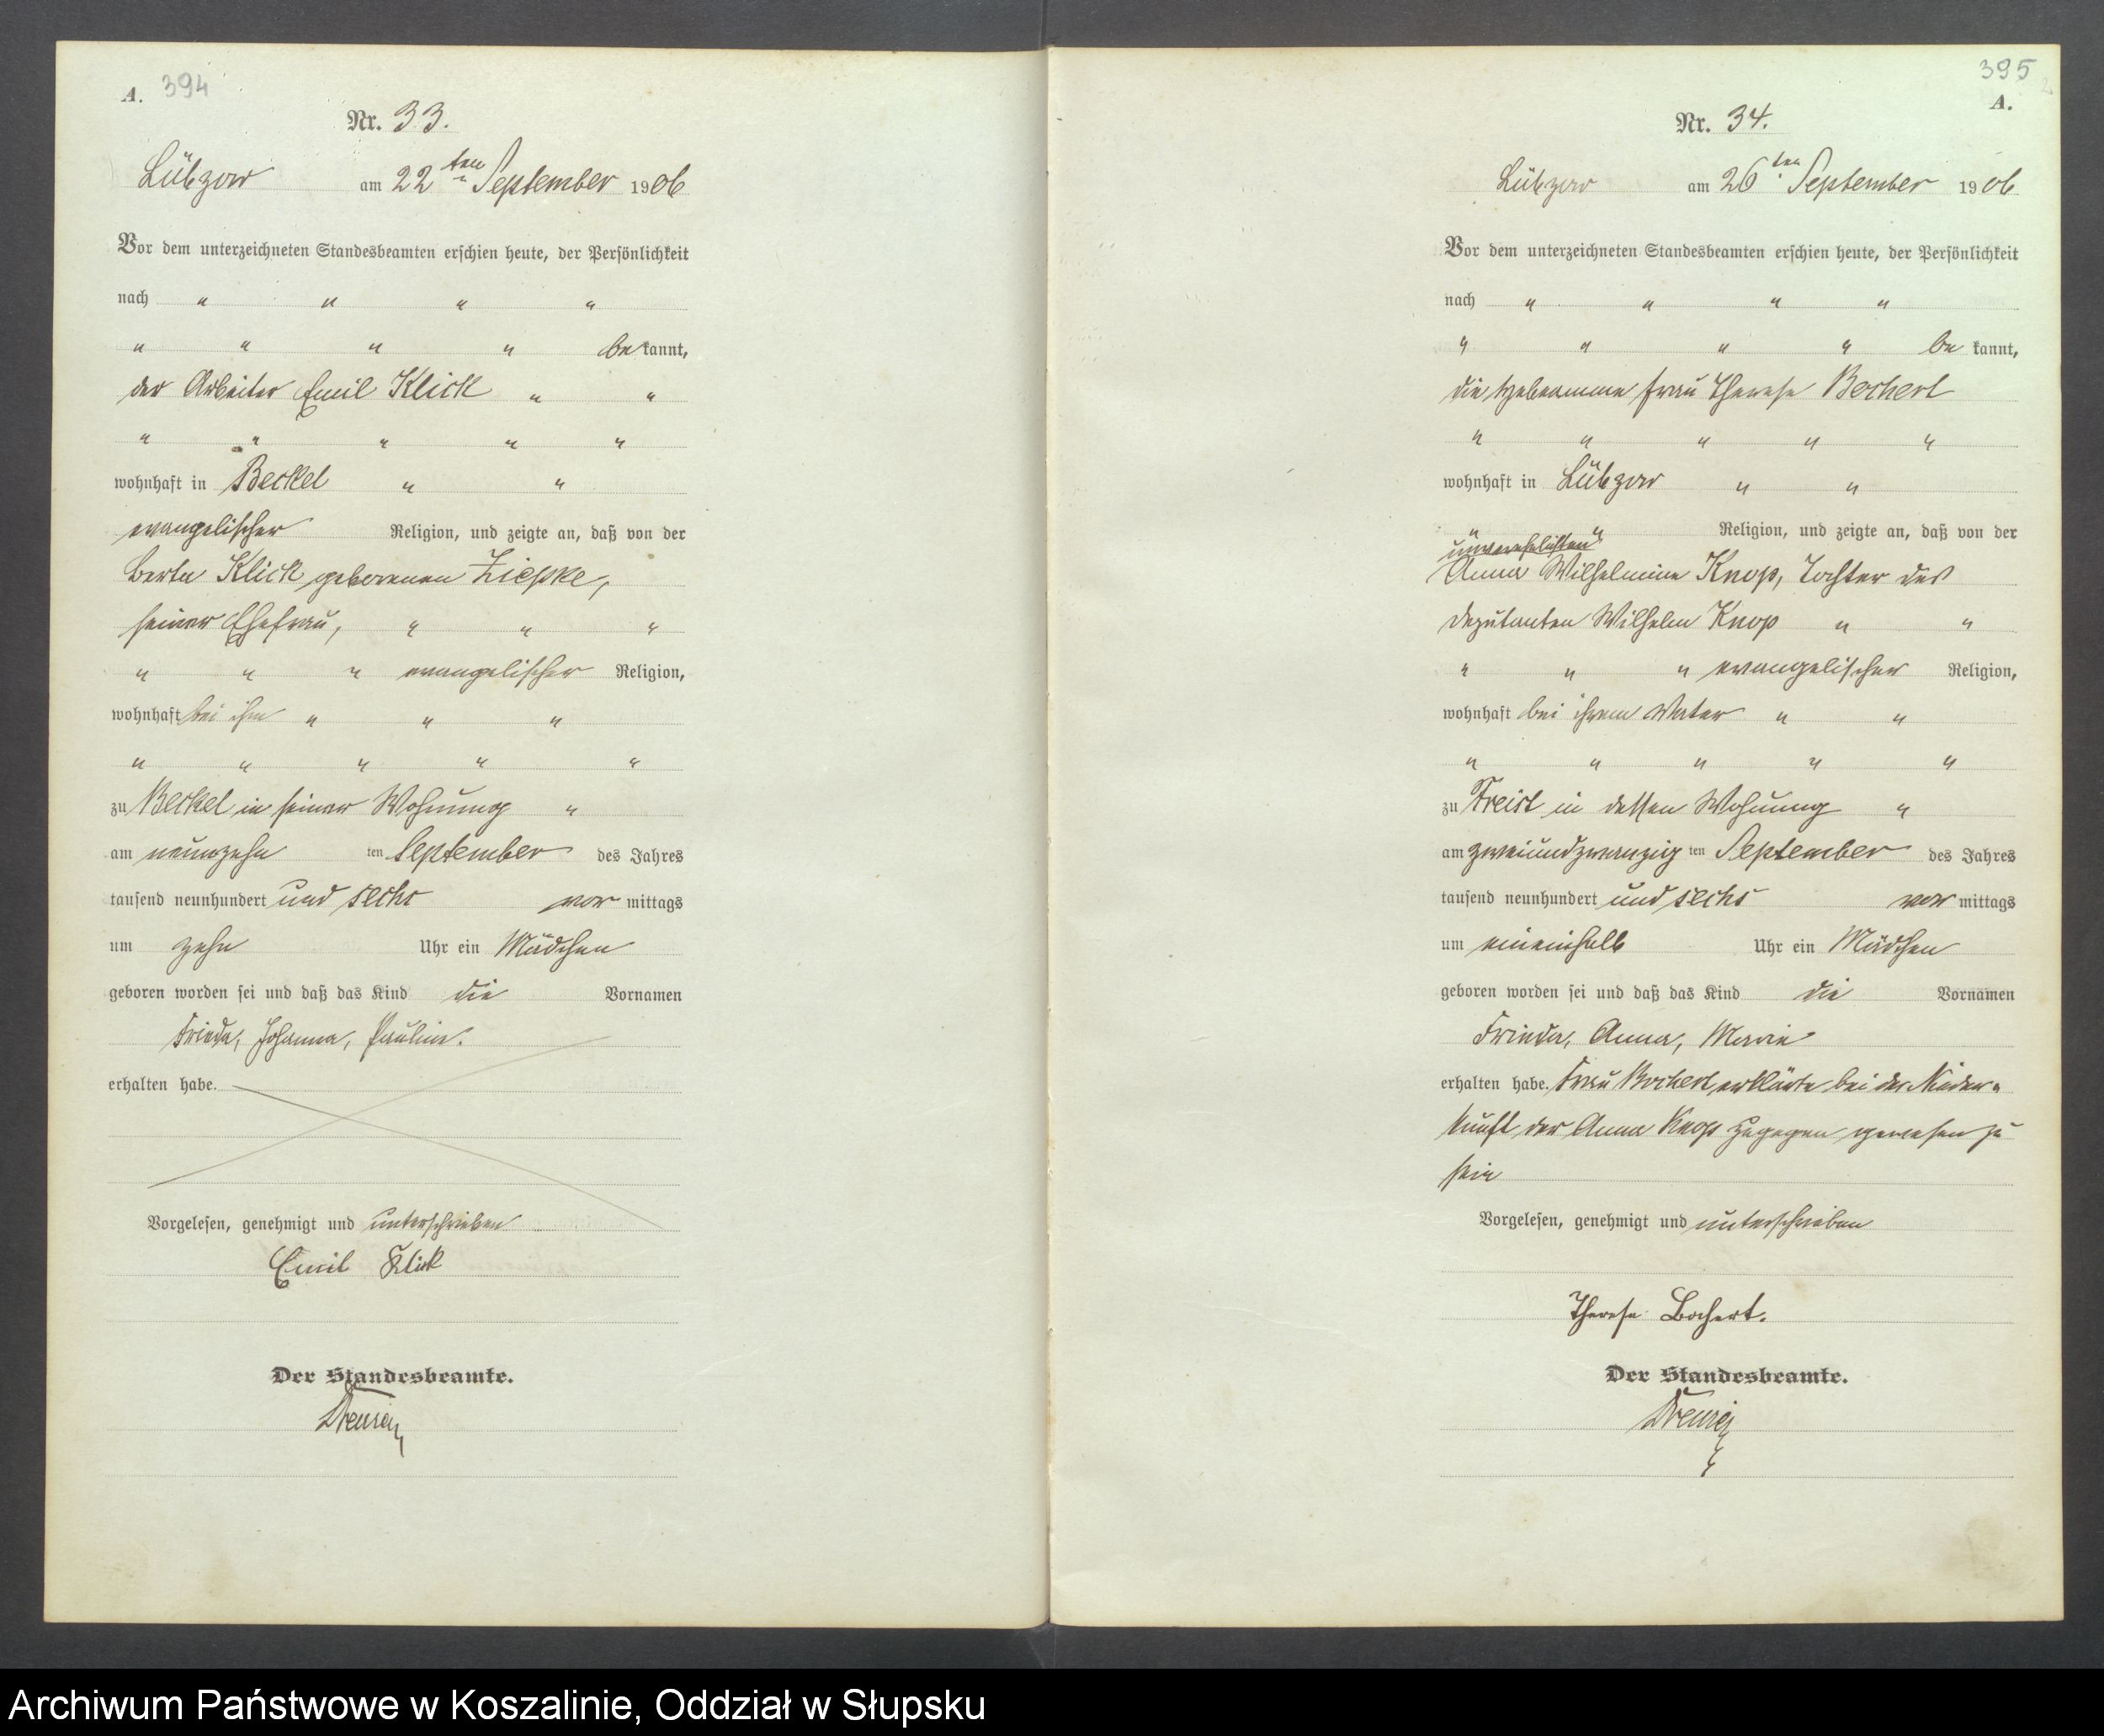 A. 394
Nr. 33.
Lübzow am 22ten September 1906
Vor dem unterzeichneten Standesbeamten erschien heute, der Persönlichkeit
nach " " " "
" " " " bekannt,
der Arbeiter Emil Klick " "
" " " " "
wohnhaft in Beckel " "
evangelischer Religion, und zeigte an, daß von der
Berta Klick geborenen Ziepke,
seiner Ehefrau, " " "
" " " evangelischer Religion,
wohnhaft bei ihm " " "
" " " " "
zu Beckel in seiner Wohnung "
am neunzehn ten September des Jahres
tausend neunhundert und sechs vor mittags
um zehn Uhr ein Mädchen
geboren worden sei und daß das Kind die Vornamen
Frieda, Johanna, Pauline.
erhalten habe.
Vorgelesen, genehmigt und unterschrieben
Emil Klick
Der Standesbeamte.
395
A.
Nr. 34.
Lübzow am 26ten September 1906
Vor dem unterzeichneten Standesbeamten erschien heute, der Persönlichkeit
nach " " " "
" " " " be kannt,
die Hebeamme Frau Therese Bochert
" " " " "
wohnhaft in Lübzow " "
" " Religion, und zeigte an, daß von der
unverehelichten
Anna Wilhelmine Knop, Tochter des
Deputanten Wilhelm Knop " "
" " " evangelischer Religion,
wohnhaft bei ihrem Vater " "
" " " " "
zu Freist in dessen Wohnung "
am zweiundzwanzig ten September des Jahres
tausend neunhundert und sechs vor mittags
um eineinhalb Uhr ein Mädchen
geboren worden sei und daß das Kind die Vornamen
Frieda, Anna, Marie
erhalten habe. Frau Bochert erklärte bei der Nieder-
kunft der Anna Knop zugegen gewesen zu
sein
Vorgelesen, genehmigt und unterschrieben
Therese Bochert.
Der Standesbeamte.
Archiwum Państwowe w Koszalinie, Oddział w Słupsku